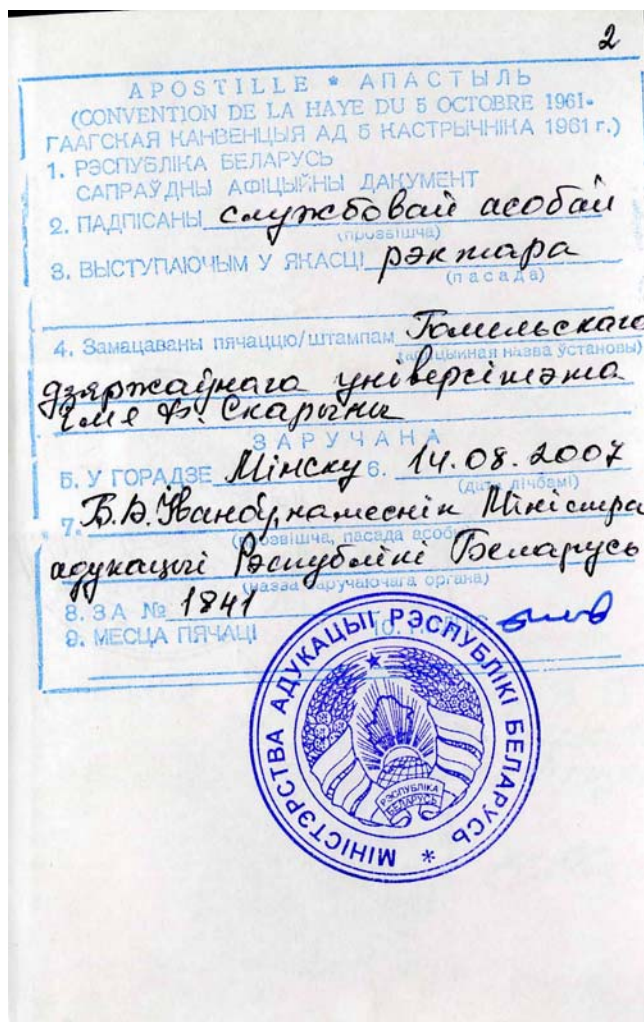 2
APOSTILLE * АПАСТЫЛЬ
(CONVENTION DE LA HAYE DU 5 OCTOBRE 1961-
ГААГСКАЯ КАНВЕНЦЫЯ АД 5 КАСТРЫЧНІКА 1961 г.)
1. РЭСПУБЛІКА БЕЛАРУСЬ
САПРАЎДНЫ АФІЦЫЙНЫ ДАКУМЕНТ
2. ПАДПІСАНЫ службовай асобай
(прозвішча)
3. ВЫСТУПАЮЧЫМ У ЯКАСЦІ рэктара
(пасада)
4. Замацаваны пячаццю/штампам Гомельскага
(афіцыйная назва ўстановы)
дзяржаўнага універсітэта
імя Ф. Скарыны
ЗАРУЧАНА
5. У ГОРАДЗЕ Мінску 6. 14.08.2007
(дата лічбамі)
7. Б.В. Іваноў, намеснік Міністра
(прозвішча, пасада асобы)
адукацыі Рэспублікі Беларусь
(назва заручаючага органа)
8. ЗА № 1841
9. МЕСЦА ПЯЧАЦІ 10.
МІНІСТЭРСТВА АДУКАЦЫІ РЭСПУБЛІКІ БЕЛАРУСЬ *
РЭСПУБЛІКА
БЕЛАРУСЬ